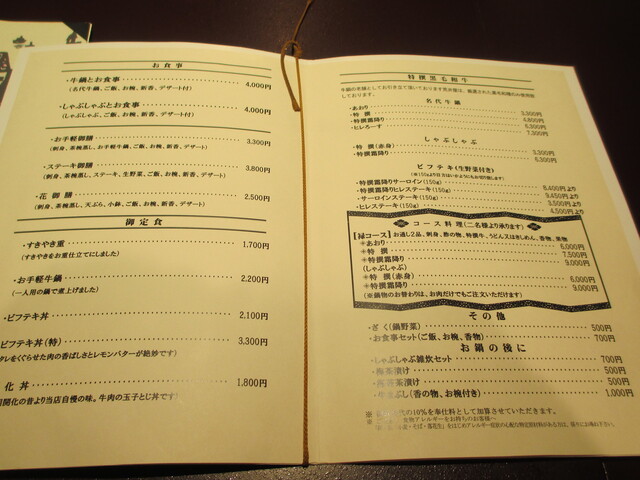 お食事
・牛鍋とお食事 4,000円
(名代牛鍋、ご飯、お椀、新香、デザート付)
・しゃぶしゃぶとお食事 4,000円
(しゃぶしゃぶ、ご飯、お椀、新香、デザート付)
・お手軽御膳 3,300円
(刺身、茶椀蒸し、お手軽牛鍋、ご飯、お椀、新香、デザート)
・ステーキ御膳 3,800円
(刺身、茶椀蒸し、ステーキ、生野菜、ご飯、お椀、新香、デザート)
・花御膳 2,500円
(刺身、茶椀蒸し、天ぷら、小鉢、ご飯、お椀、新香、デザート)
御定食
・すきやき重 1,700円
(すきやきをお重仕立てにしました)
・お手軽牛鍋 2,200円
(一人用の鍋で煮上げました)
・ビフテキ丼 2,100円
ビフテキ丼(特) 3,300円
タレをくぐらせた肉の香ばしさとレモンバターが絶妙です)
化丼 1,800円
開化の昔より当店自慢の味。牛肉の玉子とじ丼です)
特撰黒毛和牛
しております。
名代牛鍋
・あおり 3,300円
・特撰 4,800円
・特撰霜降り 6,300円
・ヒレろーす 7,300円
しゃぶしゃぶ
・特撰(赤身) 3,300円
・特撰霜降り 6,300円
ビフテキ(生野菜付き)
・特撰霜降りサーロイン(150g) 8,400円より
・特撰霜降りヒレステーキ(150g) 9,450円より
・サーロインステーキ(150g) 3,500円より
・ヒレステーキ(150g) 4,500円より
コース料理(二名様より承ります)
【縁コース】お通し2品、刺身、酢の物、特撰牛、うどん又はきしめん、香物、果物
*あおり 6,000円
*特撰 7,500円
*特撰霜降り 9,000円
(しゃぶしゃぶ)
*特撰(赤身) 6,000円
*特撰霜降り 9,000円
(※鍋物のお替わりは、お肉だけでもご注文いただけます)
その他
・ざく(鍋野菜) 500円
・お食事セット(ご飯、お椀、香物) 700円
お鍋の後に
・しゃぶしゃぶ雑炊セット 700円
・梅茶漬け 500円
茶漬け 500円
まぶし(香の物、お椀付き) 1,000円
の10%を奉仕料として加算させていただきます。